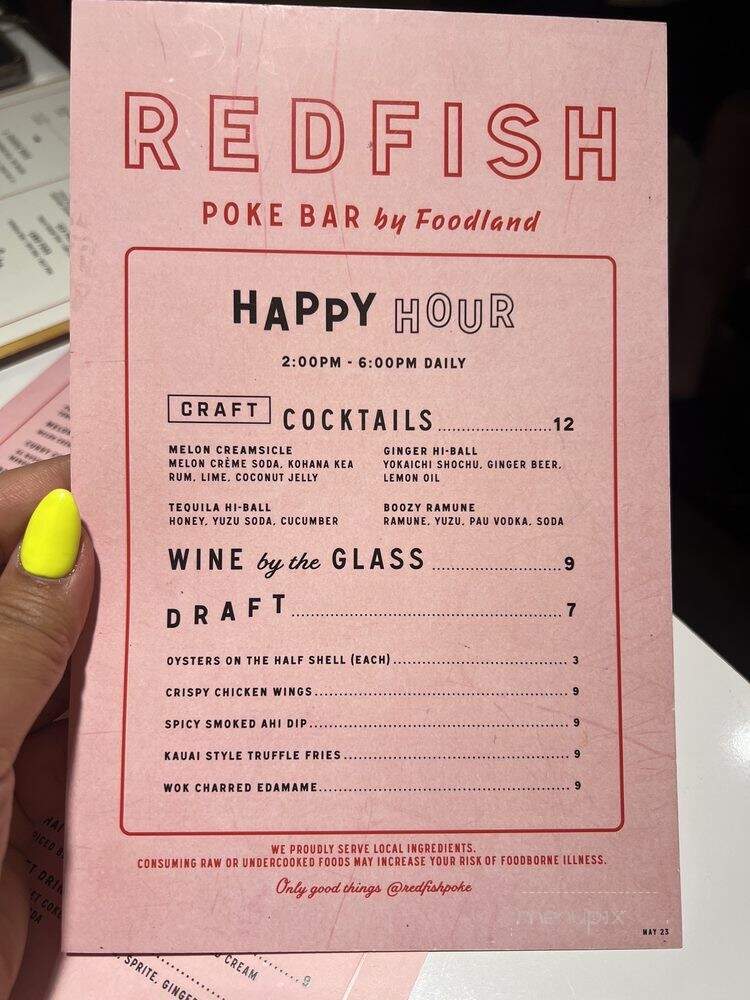 REDFISH
POKE BAR by Foodland
HAPPY HOUR
2:00PM - 6:00PM DAILY
CRAFT COCKTAILS 12
MELON CREAMSICLE
MELON CRÈME SODA, KOHANA KEA
RUM, LIME, COCONUT JELLY
GINGER HI-BALL
YOKAICHI SHOCHU, GINGER BEER,
LEMON OIL
TEQUILA HI-BALL
HONEY, YUZU SODA, CUCUMBER
BOOZY RAMUNE
RAMUNE, YUZU, PAU VODKA, SODA
WINE by the GLASS 9
DRAFT 7
OYSTERS ON THE HALF SHELL (EACH) 3
CRISPY CHICKEN WINGS 9
SPICY SMOKED AHI DIP 9
KAUAI STYLE TRUFFLE FRIES 9
WOK CHARRED EDAMAME 9
WE PROUDLY SERVE LOCAL INGREDIENTS.
CONSUMING RAW OR UNDERCOOKED FOODS MAY INCREASE YOUR RISK OF FOODBORNE ILLNESS.
Only good things @redfishpoke
menupix
MAY 23
CREAM 9
SPRITE, GINGER